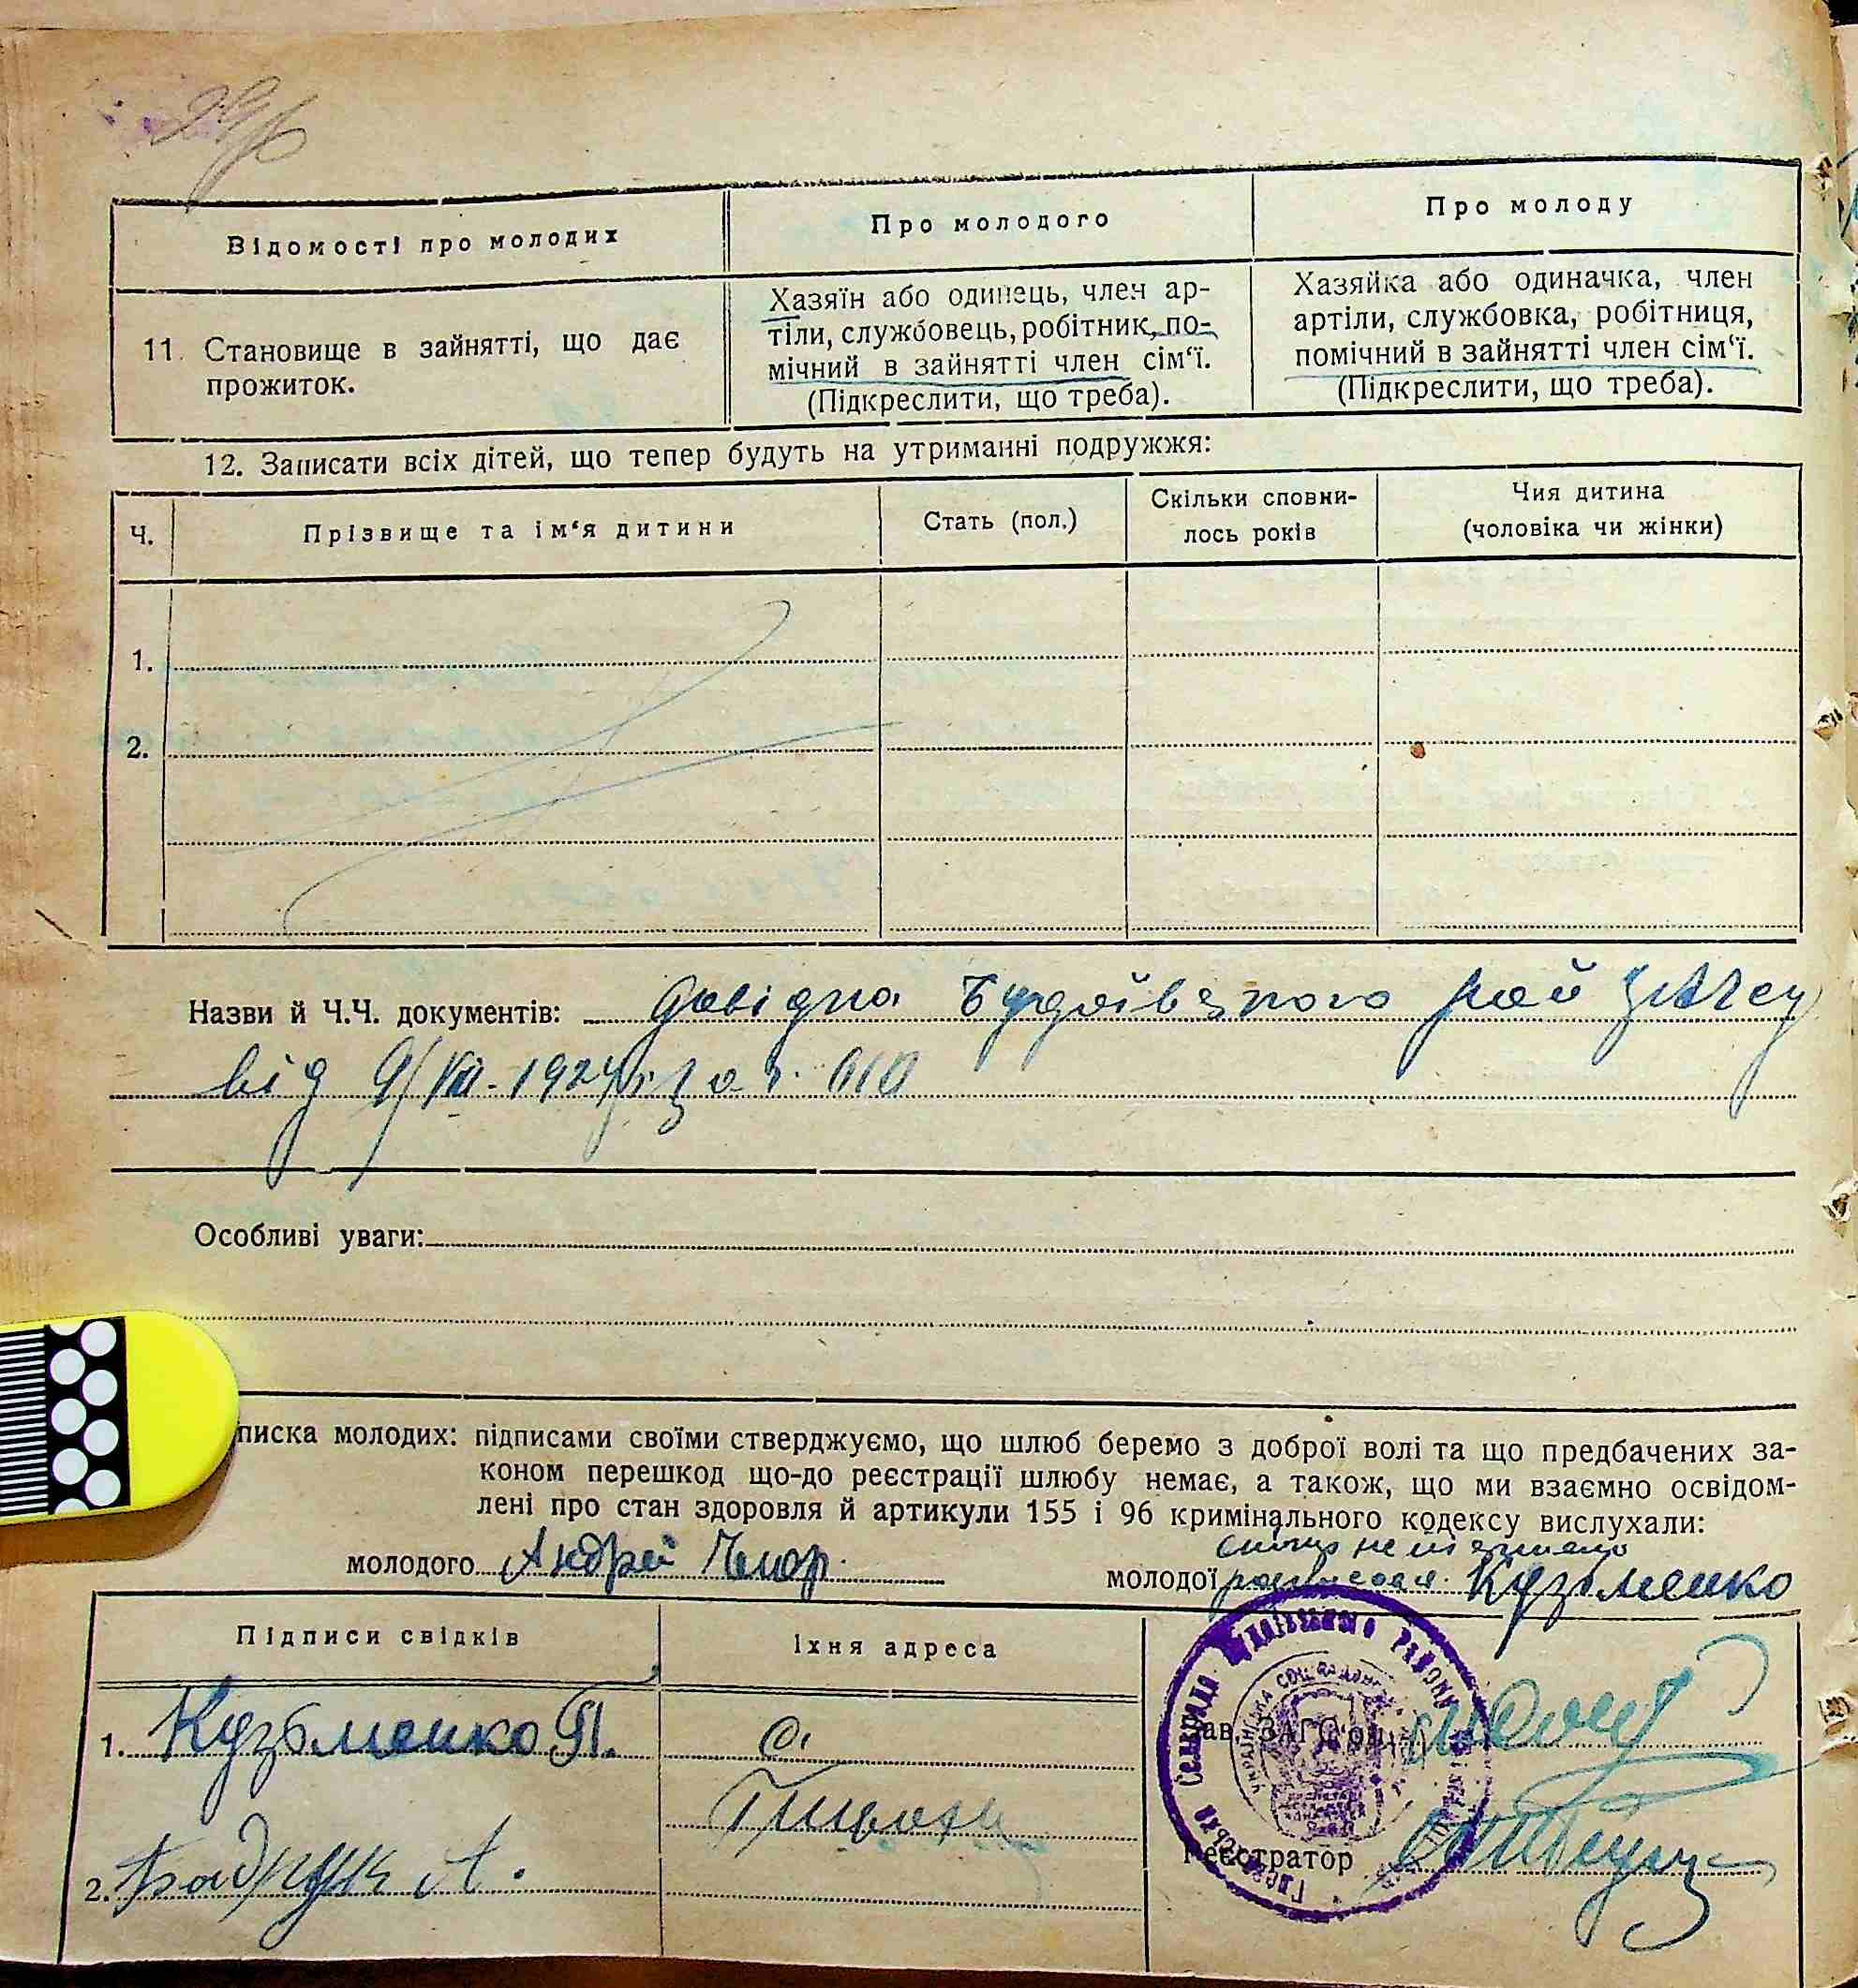 Відомості про молодих
Про молодого
Про молоду
11. Становище в зайнятті, що дає
прожиток.
Хазяїн або одинець, член ар-
тіли, службовець, робітник, по-
мічний в зайнятті член сім‘ї.
(Підкреслити, що треба).
Хазяйка або одиначка, член
артіли, службовка, робітниця,
помічний в зайнятті член сім‘ї.
(Підкреслити, що треба).
12. Записати всіх дітей, що тепер будуть на утриманні подружжя:
Ч.
Прізвище та ім‘я дитини
Стать (пол.)
Скільки сповни-
лось років
Чия дитина
(чоловіка чи жінки)
1.
2.
Назви й Ч.Ч. документів: довідка Будаївського рай ЗАГСу
від 9/VIII
Особливі уваги:
писка молодих: підписами своїми стверджуємо, що шлюб беремо з доброї волі та що предбачених за-
коном перешкод що-до реєстрації шлюбу немає, а також, що ми взаємно освідом-
лені про стан здоровля й артикули 155 і 96 кримінального кодексу вислухали:
молодого Андрей
молодої Кузьменко
Підписи свідків
Їхня адреса
1. Кузьменко П.
с.
2. Бадрук А.
Зав. ЗАГС‘ом
Реєстратор
Сельрада Будаївського району